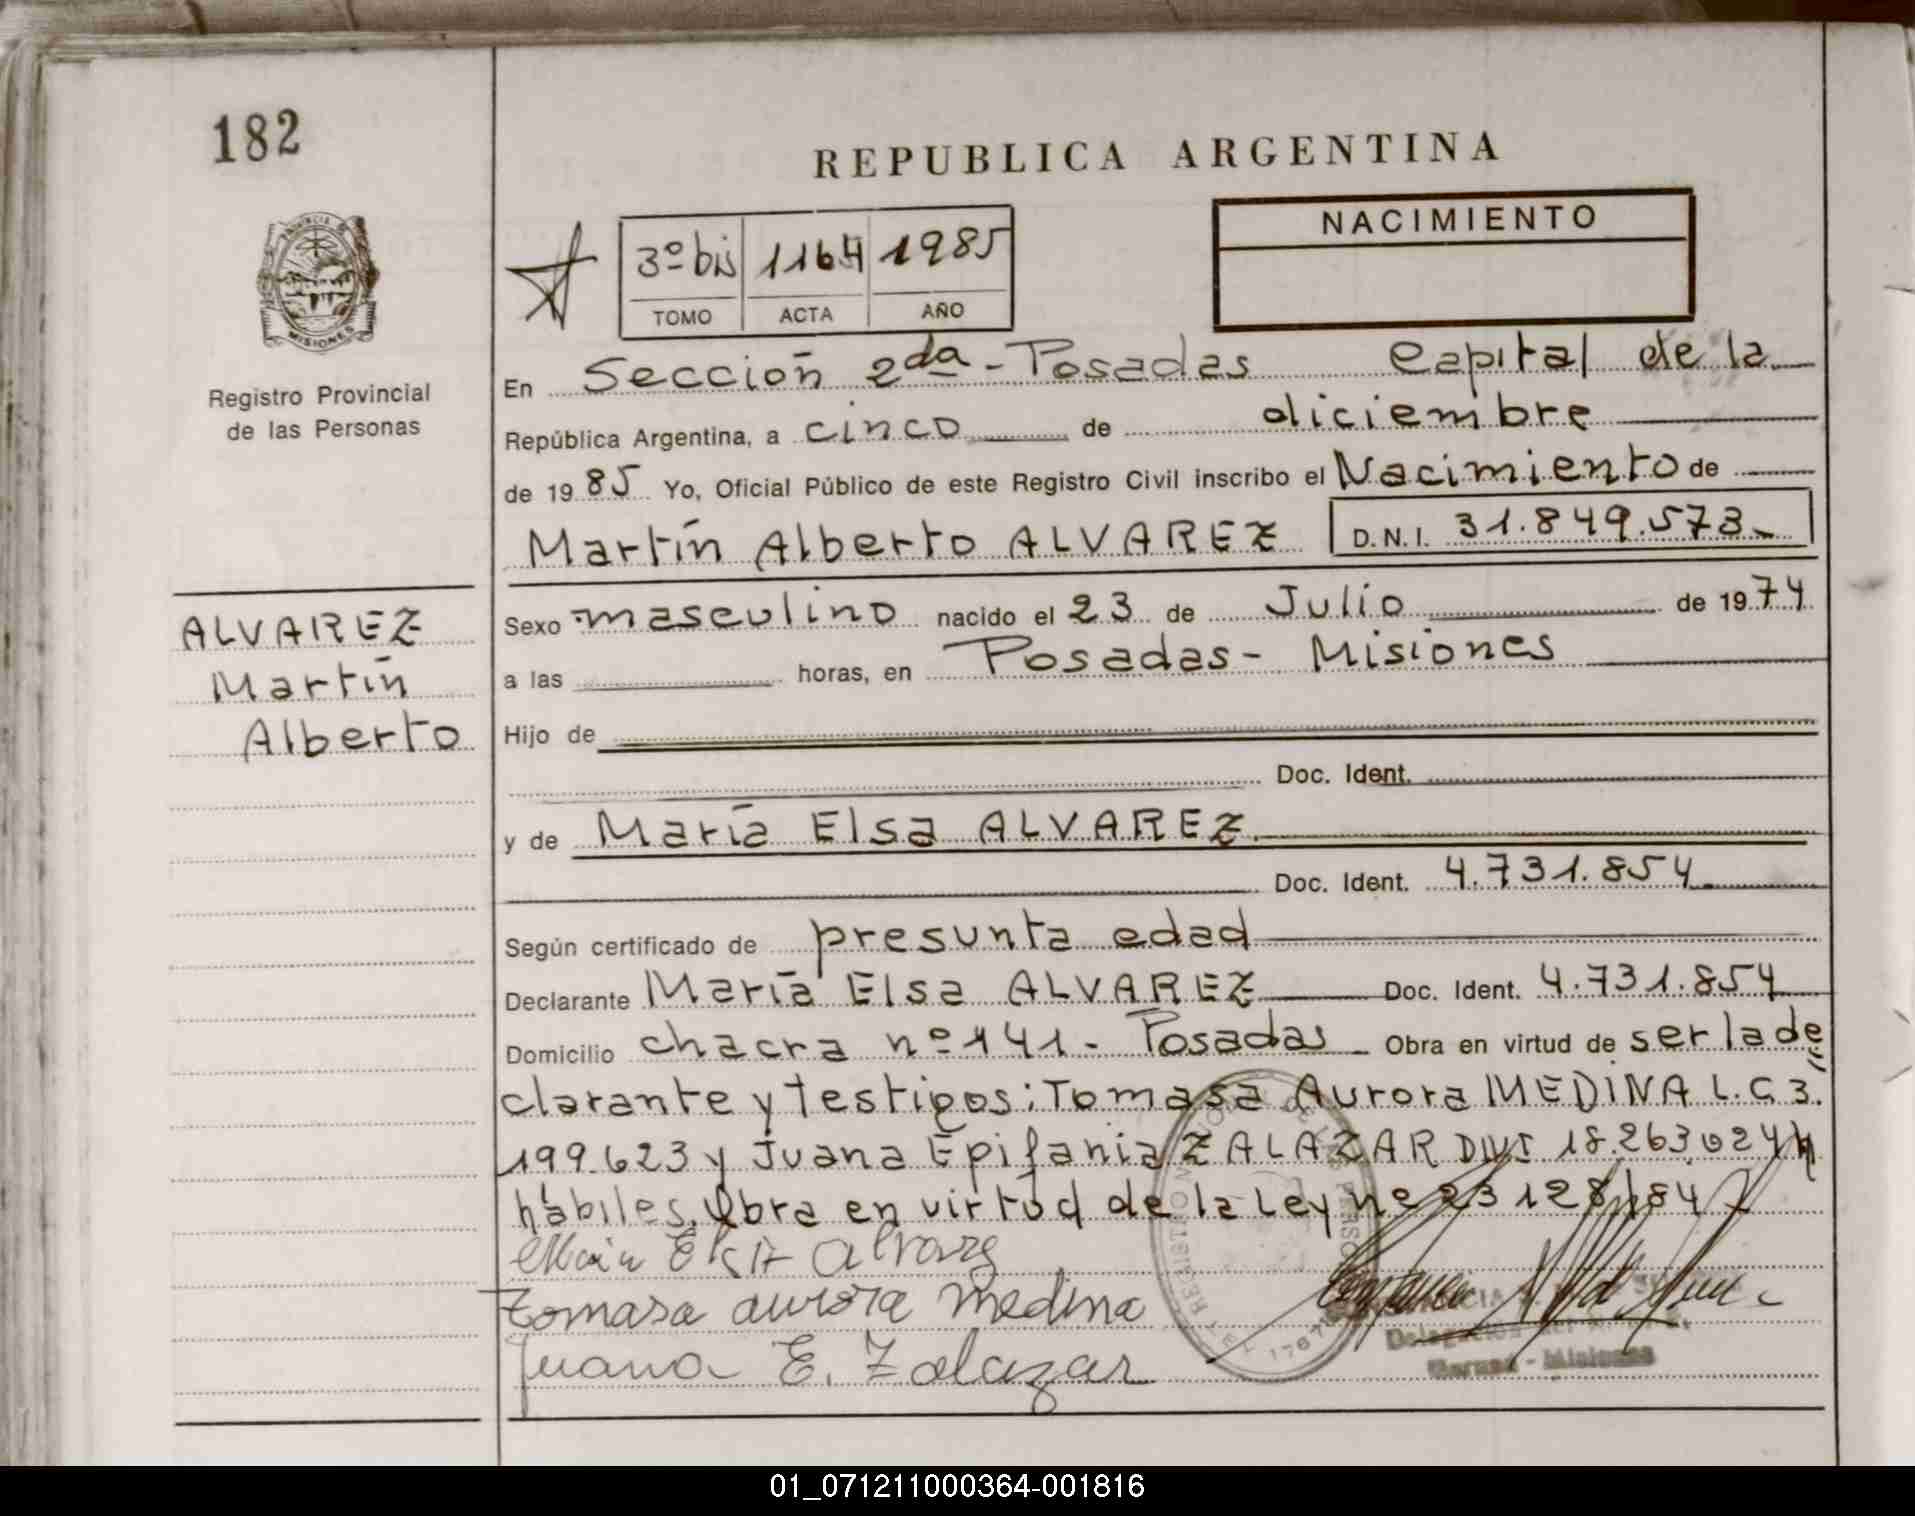 182
REPUBLICA ARGENTINA
NACIMIENTO
3º bis 1164 1985
TOMO ACTA AÑO
PROVINCIA DE MISIONES
Registro Provincial
de las Personas
En Sección 2da - Posadas Capital de la
República Argentina, a cinco de diciembre
de 1985 Yo, Oficial Público de este Registro Civil inscribo el Nacimiento de
Martín Alberto ALVAREZ D.N.I. 31.849.573.
ALVAREZ
Martín
Alberto
Sexo masculino nacido el 23 de Julio de 1974
a las horas, en Posadas - Misiones
Hijo de
Doc. Ident.
y de María Elsa ALVAREZ
Doc. Ident. 4.731.854
Según certificado de presunta edad
Declarante María Elsa ALVAREZ Doc. Ident. 4.731.854
Domicilio chacra nº 141 - Posadas Obra en virtud de ser la de
clarante y testigos: Tomasa Aurora MEDINA L.C 3.
199.623 y Juana Epifania ZALAZAR DNI 18.263.024
hábiles. Obra en virtud de la Ley nº 23128/84
María Elsa Alvarez
Tomasa aurora medina
Juana E. Zalazar
Misiones
01_071211000364-001816